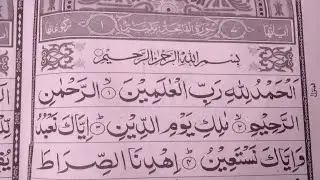 بِسْمِ اللّٰهِ الرَّحْمٰنِ الرَّحِيْمِ
اَلْحَمْدُ لِلّٰهِ رَبِّ الْعٰلَمِيْنَ ۙ﴿۱﴾ الرَّحْمٰنِ
الرَّحِيْمِ ۙ﴿۲﴾ مٰلِكِ يَوْمِ الدِّيْنِ ؕ﴿۳﴾ اِيَّاكَ نَعْبُدُ
وَ اِيَّاكَ نَسْتَعِيْنُ ؕ﴿۴﴾ اِهْدِنَا الصِّرَاطَ